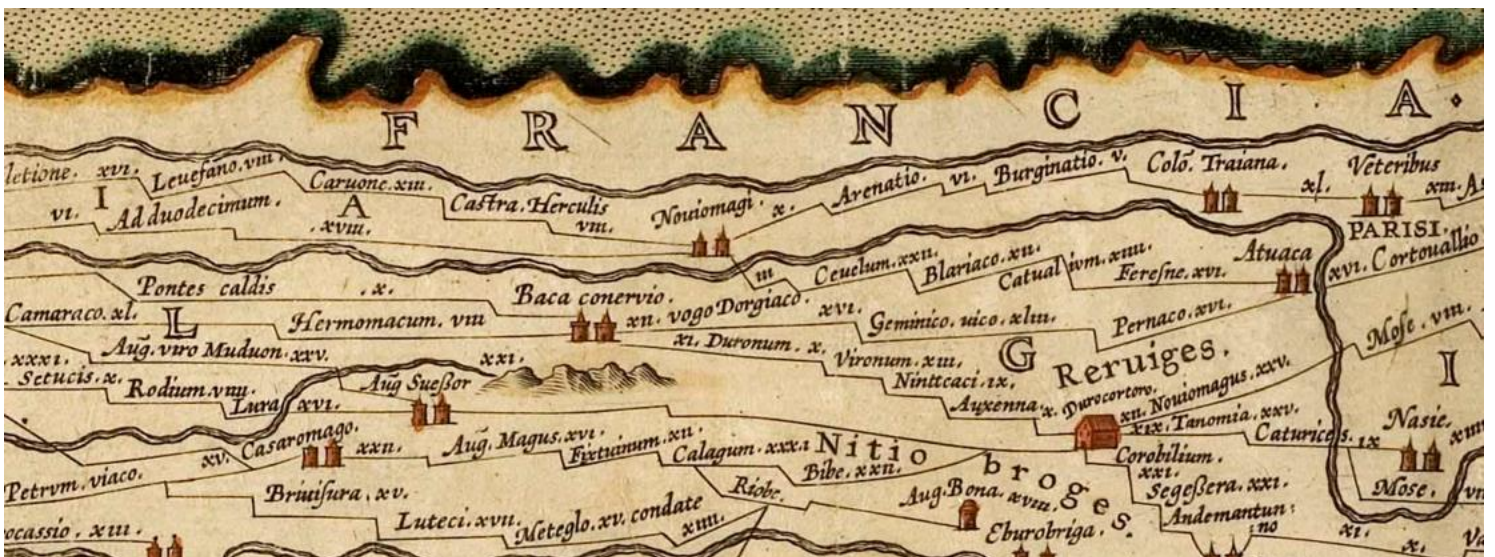 FRANCIA.
letione. xvi. Leuefano. viii.
Caruone. xiii.
Castra. Herculis
viii.
Nouiomagi. x.
Arenatio. vi.
Burginatio. v.
Colõ. Traiana.
xl.
Veteribus
xiii. As
vi.
I
Ad duodecimum.
A
.xviii.
PARISI.
Atuaca
xvi. Cortouallio
Pontes caldis .x.
Baca conervio.
iii
Ceuelum. xxii.
Blariaco. xii.
Catualium. xiiii.
Feresne. xvi.
Camaraco. xl.
L
Hermomacum. viii
xii. vogo Dorgiaco. xvi.
Geminico. uico. xliii.
Pernaco. xvi.
Mose. viii.
.xxxi.
Aug. viro Muduon. xxv.
xxi.
xi. Duronum. x.
Vironum. xiii.
G
Reruiges.
I
Setucis. x.
Rodium. viiii.
Aug Sueßor
Ninttcaci. ix.
Lura xvi.
Auxenna. x. Durocortoro.
xii. Nouiomagus. xxv.
xix. Tanomia. xxv.
Caturices. ix
Nasie.
xiiii
Petrvm. viaco.
xv. Casaromago.
xxii.
Aug. Magus. xvi.
Fixtuinum. xii.
Calagum. xxxi
Nitiobroges.
Bibe. xxii.
Corobilium.
xxi.
Mose.
Briuisura. xv.
Riobe.
Aug. Bona. xviii.
Segeßera. xxi.
ocassio. xiii.
Luteci. xvii.
Meteglo. xv. condate
xiiii.
Eburobriga.
Andemantun:
no
xi.
x.